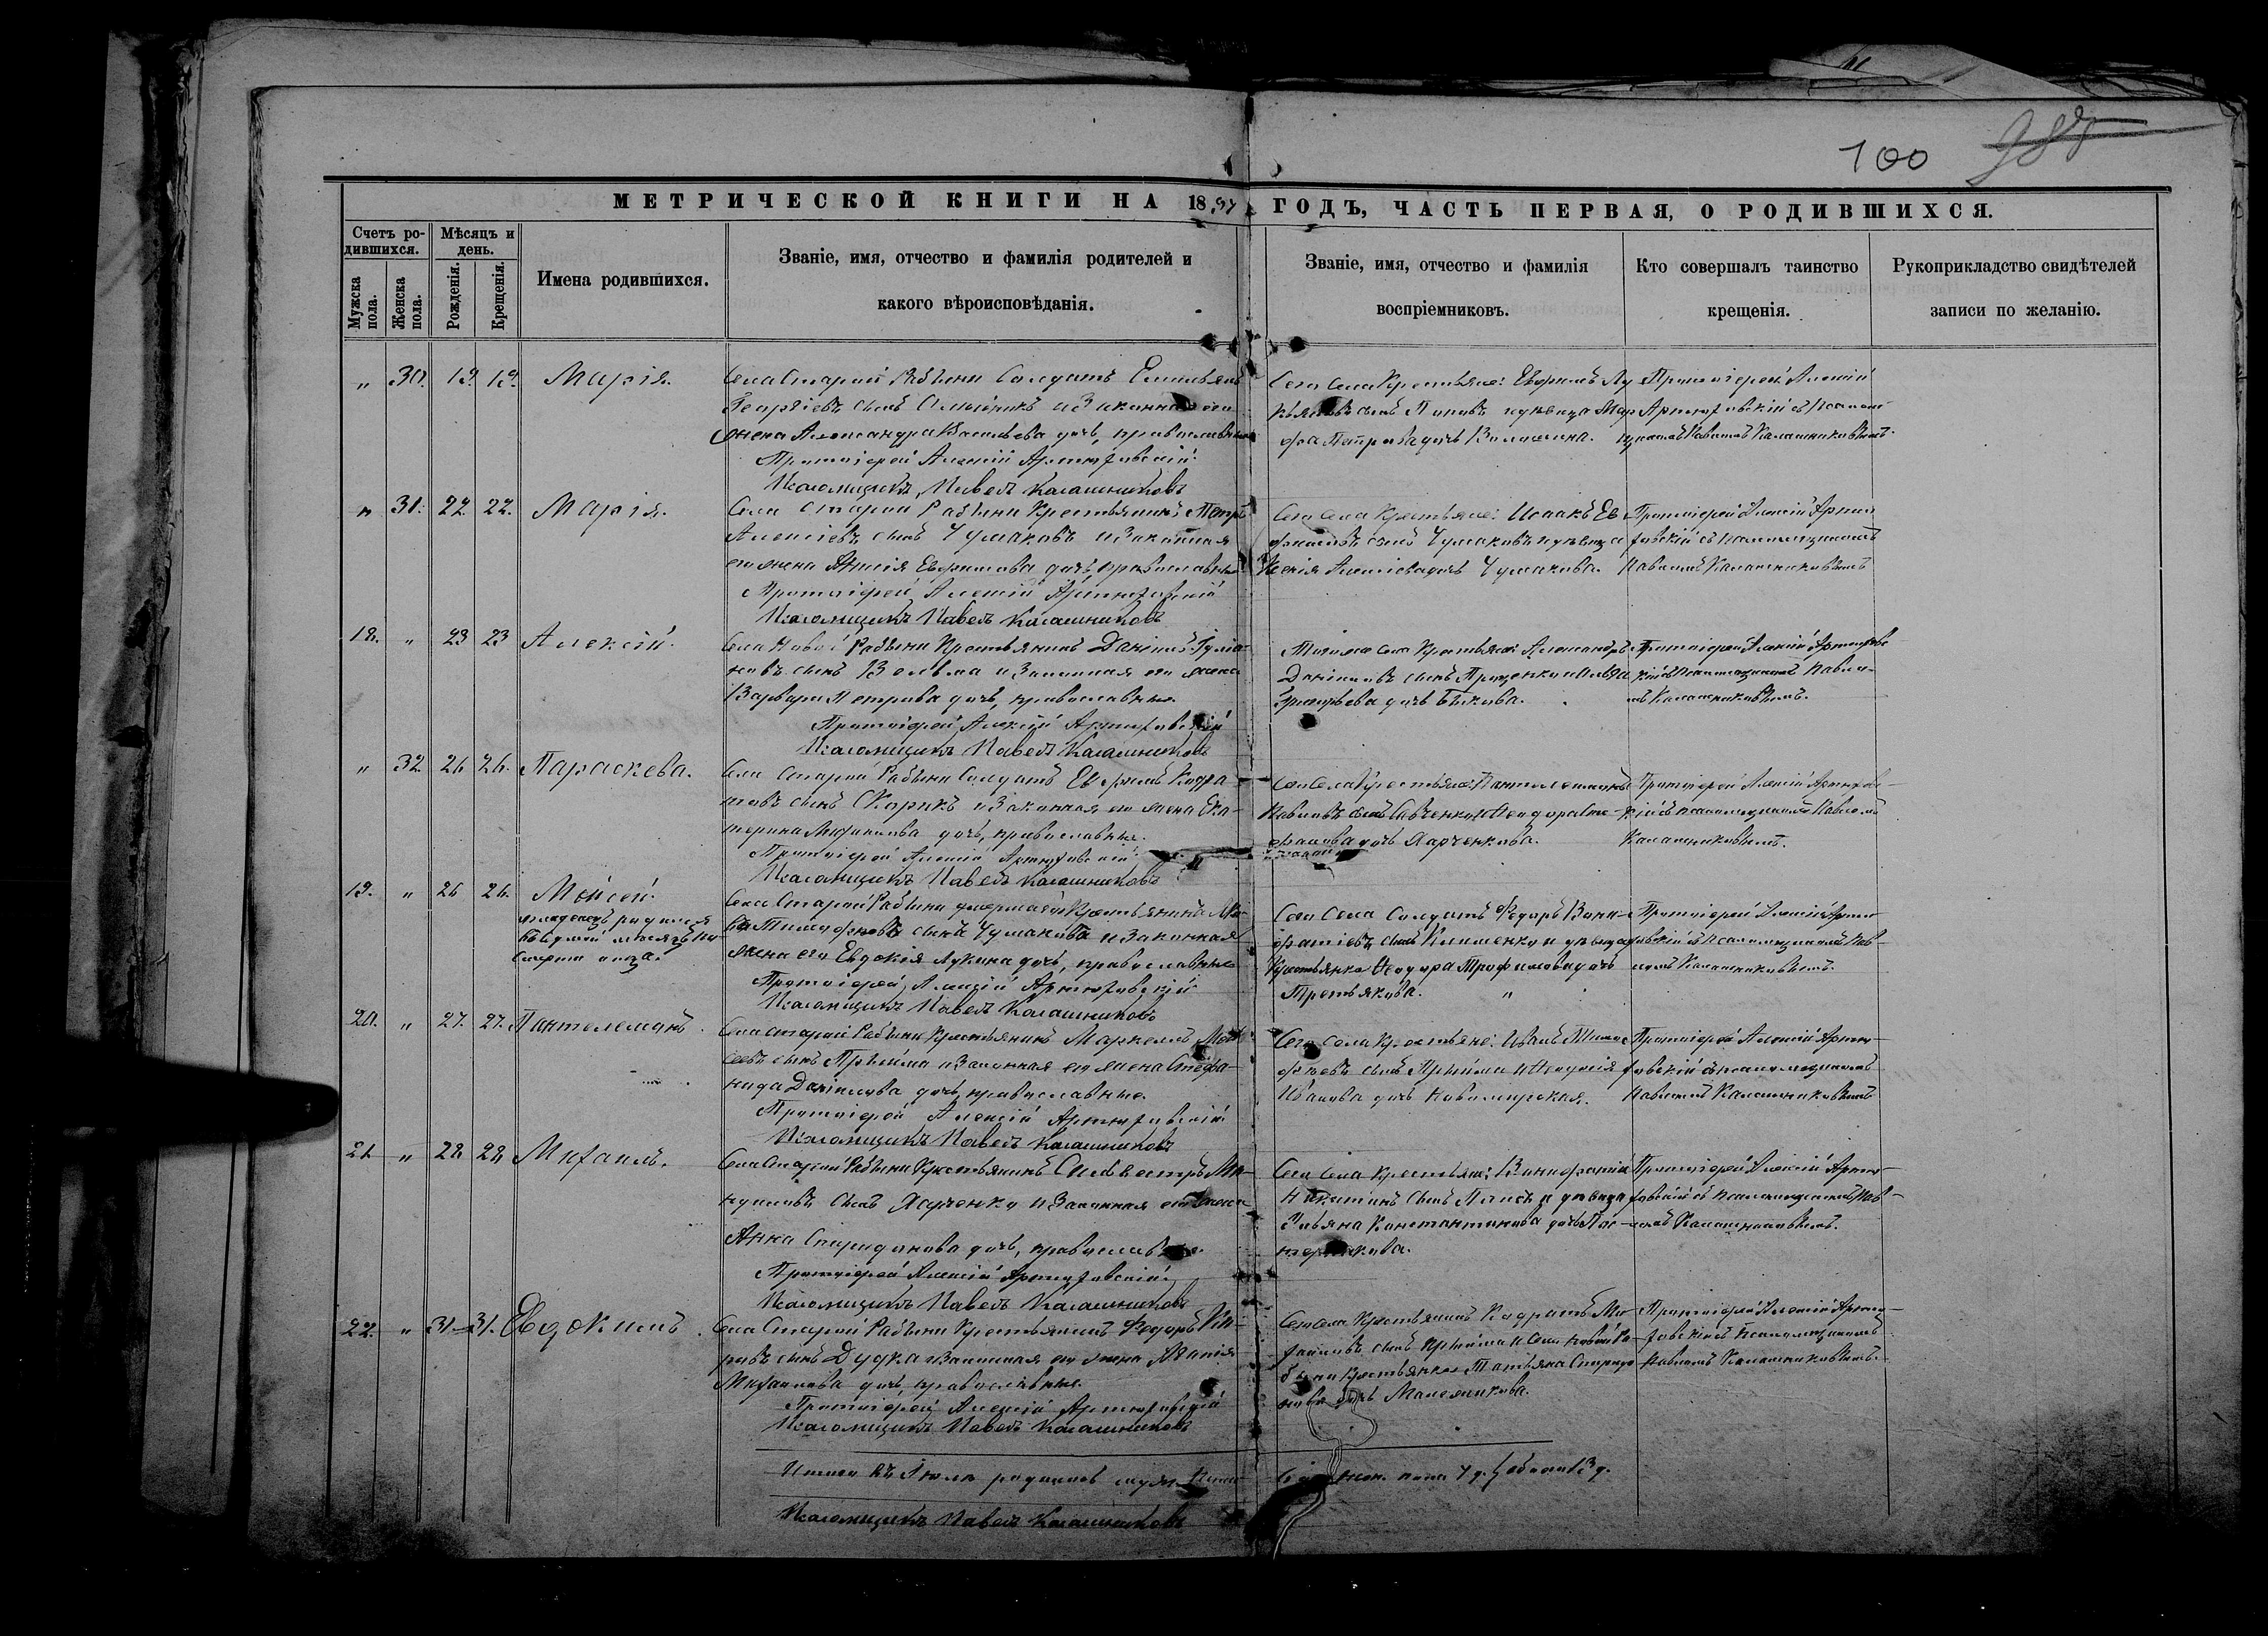 100
МЕТРИЧЕСКОЙ КНИГИ НА 1897 ГОДЪ, ЧАСТЬ ПЕРВАЯ, О РОДИВШИХСЯ.
Счетъ ро-
дившихся.
Мужска пола.
Женска пола.
Мѣсяцъ и
день.
Рожденія.
Крещенія.
Имена родившихся.
Званіе, имя, отчество и фамилія родителей и
какого вѣроисповѣданія.
Званіе, имя, отчество и фамилія
воспріемниковъ.
Кто совершалъ таинство
крещенія.
Рукоприкладство свидѣтелей
записи по желанію.
" 30. 19. 19. Марія.
Села Старой Рябины Солдатъ Емельянъ
Георгіевъ сынъ и законная его
жена Александра Васильева дочь, православные
Протоіерей Алексій Артюховскій
Псаломщикъ Павелъ Калашниковъ
Сего села Крестьяне: Евфимъ Лу-
кьяновъ сынъ Поповъ и дѣвица Мар-
фа Петрова дочь
Протоіерей Алексій
Артюховскій съ псалом-
щикомъ Павломъ Калашниковымъ.
" 31. 22. 22. Марія.
Села Старой Рябины Крестьянинъ Петръ
Алексіевъ сынъ Чумаковъ и законная
его жена Евфимова дочь, православные
Протоіерей Алексій Артюховскій
Псаломщикъ Павелъ Калашниковъ
Сего села Крестьяне: Исаакъ Ев-
фимовъ сынъ Чумаковъ и дѣвица
Ксенія Алексіева дочь Чумакова.
Протоіерей Алексій Артю-
ховскій съ псаломщикомъ
Павломъ Калашниковымъ
18. " 23 23 Алексій.
Села Новой Рябины Крестьянинъ Даніилъ Гуліа-
новъ сынъ и законная его жена
Варвара Петрова дочь, православные.
Протоіерей Алексій Артюховскій
Псаломщикъ Павелъ Калашниковъ
Того же села Крестьяне: Александръ
Даніиловъ сынъ Проценко и
Григорьева дочь Быкова.
Протоіерей Алексій Артюховс-
кій съ псаломщикомъ Павло-
мъ Калашниковымъ.
" 32 26 26. Параскева.
Села Старой Рябины Солдатъ Евфимъ Кодра-
товъ сынъ Скорикъ и законная его жена Ека-
терина Михаилова дочь, православные.
Протоіерей Алексій Артюховскій
Псаломщикъ Павелъ Калашниковъ
Сего села Крестьяне: Пантелеимонъ
Павловъ сынъ Савченко и Ѳеодора Сте-
фанова дочь Харченкова.
Протоіерей Алексій Артюховс-
кій съ псаломщикомъ Павломъ
Калашниковымъ.
19. " 26 26. Моисей.
младенецъ родился
въ седьмой мѣсяцъ по
смерти отца.
Села Старой Рябины умершаго Крестьянина
Тимофіева сына Чумакова и законная
жена его Евдокія Лукина дочь, православные
Протоіерей Алексій Артюховскій
Псаломщикъ Павелъ Калашниковъ
Сего села Солдатъ Федоръ Вони-
фатіевъ сынъ Клименко и дѣвица
Крестьянка Ѳеодора Трофимова дочь
Третьякова. "
Протоіерей Алексій Артю-
ховскій съ псаломщикомъ Пав-
ломъ Калашниковымъ.
20. " 27. 27. Пантелеимонъ.
Села Старой Рябины Крестьянинъ Маркеллъ Мои-
сеевъ сынъ Пріймa и законная его жена Стефа-
нида Даніилова дочь, православные.
Протоіерей Алексій Артюховскій
Псаломщикъ Павелъ Калашниковъ
Сего села Крестьяне: Иванъ Тимо-
фіевъ сынъ Прійма и Ѳеодосія
Иванова дочь Новомирская.
Протоіерей Алексій Артю-
ховскій съ псаломщикомъ
Павломъ Калашниковымъ
21. " 28. 28. Михаилъ.
Села Старой Рябины Крестьянинъ Сильвестръ Ма-
нуиловъ сынъ Харченко и законная его жена
Анна Спиридонова дочь, православные.
Протоіерей Алексій Артюховскій
Псаломщикъ Павелъ Калашниковъ
Сего села Крестьяне: Вонифатій
Никитинъ сынъ и дѣвица
Ульяна Константинова дочь
Протоіерей Алексій Артю-
ховскій съ псаломщикомъ Пав-
ломъ Калашниковымъ.
22. " 31 31. Евдокимъ.
Села Старой Рябины Крестьянинъ Федоръ
сынъ Дудка и законная его жена
Михаилова дочь, православные.
Протоіерей Алексій Артюховскій
Псаломщикъ Павелъ Калашниковъ
Сего села Крестьянинъ Кодратъ Ми-
хаиловъ сынъ Прійма и села Новой Ря-
бины Крестьянка Татьяна Спиридо-
нова дочь
Протоіерей Алексій Артю-
ховскій съ псаломщикомъ
Павломъ Калашниковымъ.
Итого въ Іюлѣ родилось муж. пола 6 и жен. пола 7 д. обоего 13 д.
Псаломщикъ Павелъ Калашниковъ